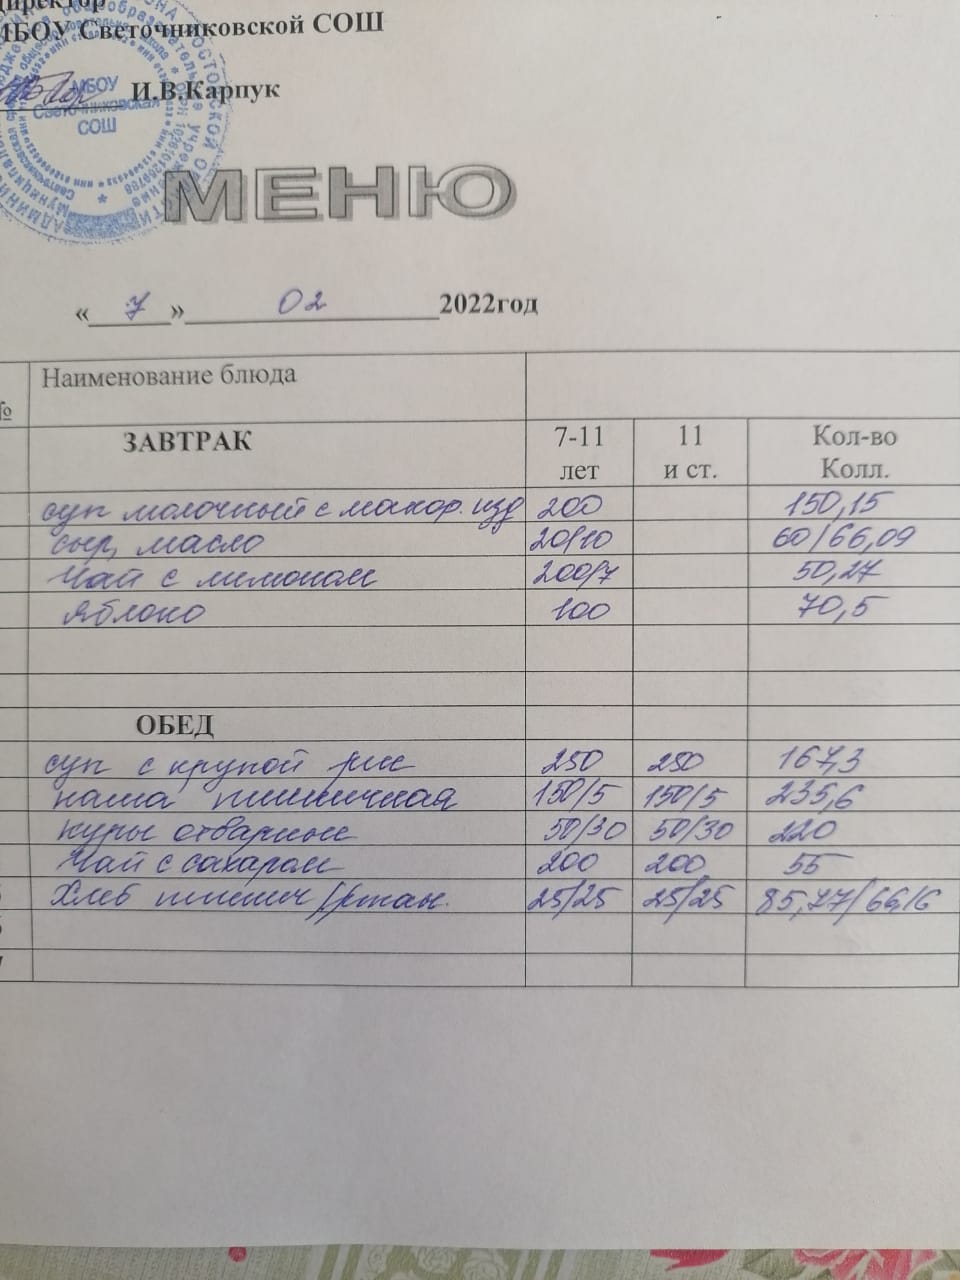 Директор
МБОУ Светочниковской СОШ
И.В.Карпук
МБОУ
Светочниковская
СОШ
МЕНЮ
« 7 » 02 2022год
№ Наименование блюда
ЗАВТРАК 7-11 лет 11 и ст. Кол-во Колл.
суп молочный с макор. изд 200 150,15
сыр, масло 20/10 60/66,09
Чай с лимоном 200/7 50,27
Яблоко 100 70,5
ОБЕД
суп с крупой рис 250 250 167,3
каша пшеничная 150/5 150/5 235,6
куры отварные 50/30 50/30 220
Чай с сахаром 200 200 55
Хлеб пшенич/ржан. 25/25 25/25 85,77/66,16